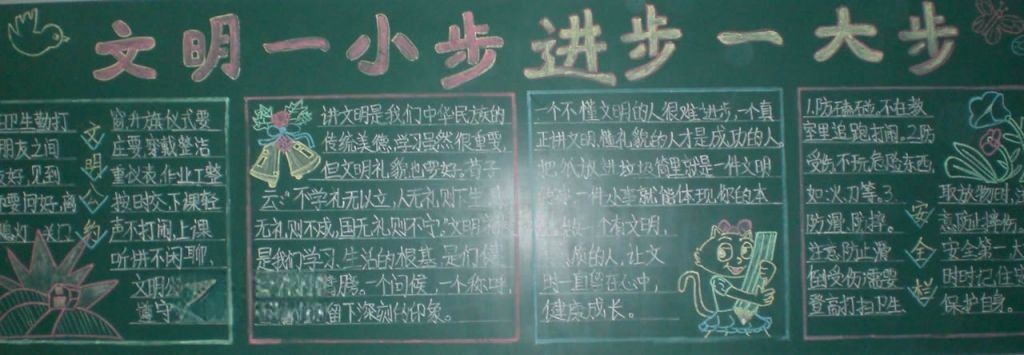 文明一小步 进步一大步
卫生勤打
朋友之间
友好,见到
要问好,离
随灯、关门
文明公约
窗升旗仪式要
庄要穿戴整洁
重仪表,作业工整
按时交下课轻
声不打闹,上课
听讲不闲聊,
文明公
遵守
讲文明是我们中华民族的
传统美德,学习虽然很重要,
但文明礼貌也要好。荀子
云:"不学礼无以立,人无礼则下生
无礼则不成,国无礼则不宁。"文明
是我们学习、生活的根基,是们健
腾。一个问候,一个称呼
留下深刻的印象。
一个不懂文明的人很难进步,一个真
正拼文明,懂礼貌的人才是成功的人。
把 放进垃圾筒里就是一件文明
一件小事就能体现你的本
一个有文明,
质的人,让文
明一直留在心中,
健康成长。
1.防磕碰,不在教
室里追跑打闹,2.防
受伤不玩危险东西,
如:火刀等。3.
防滑,防摔。
注意防止滑
倒受伤,需要
登高打扫卫生
安全栏
取放物时,注
意防止摔伤。
安全第一大
时时记住要
保护自身。